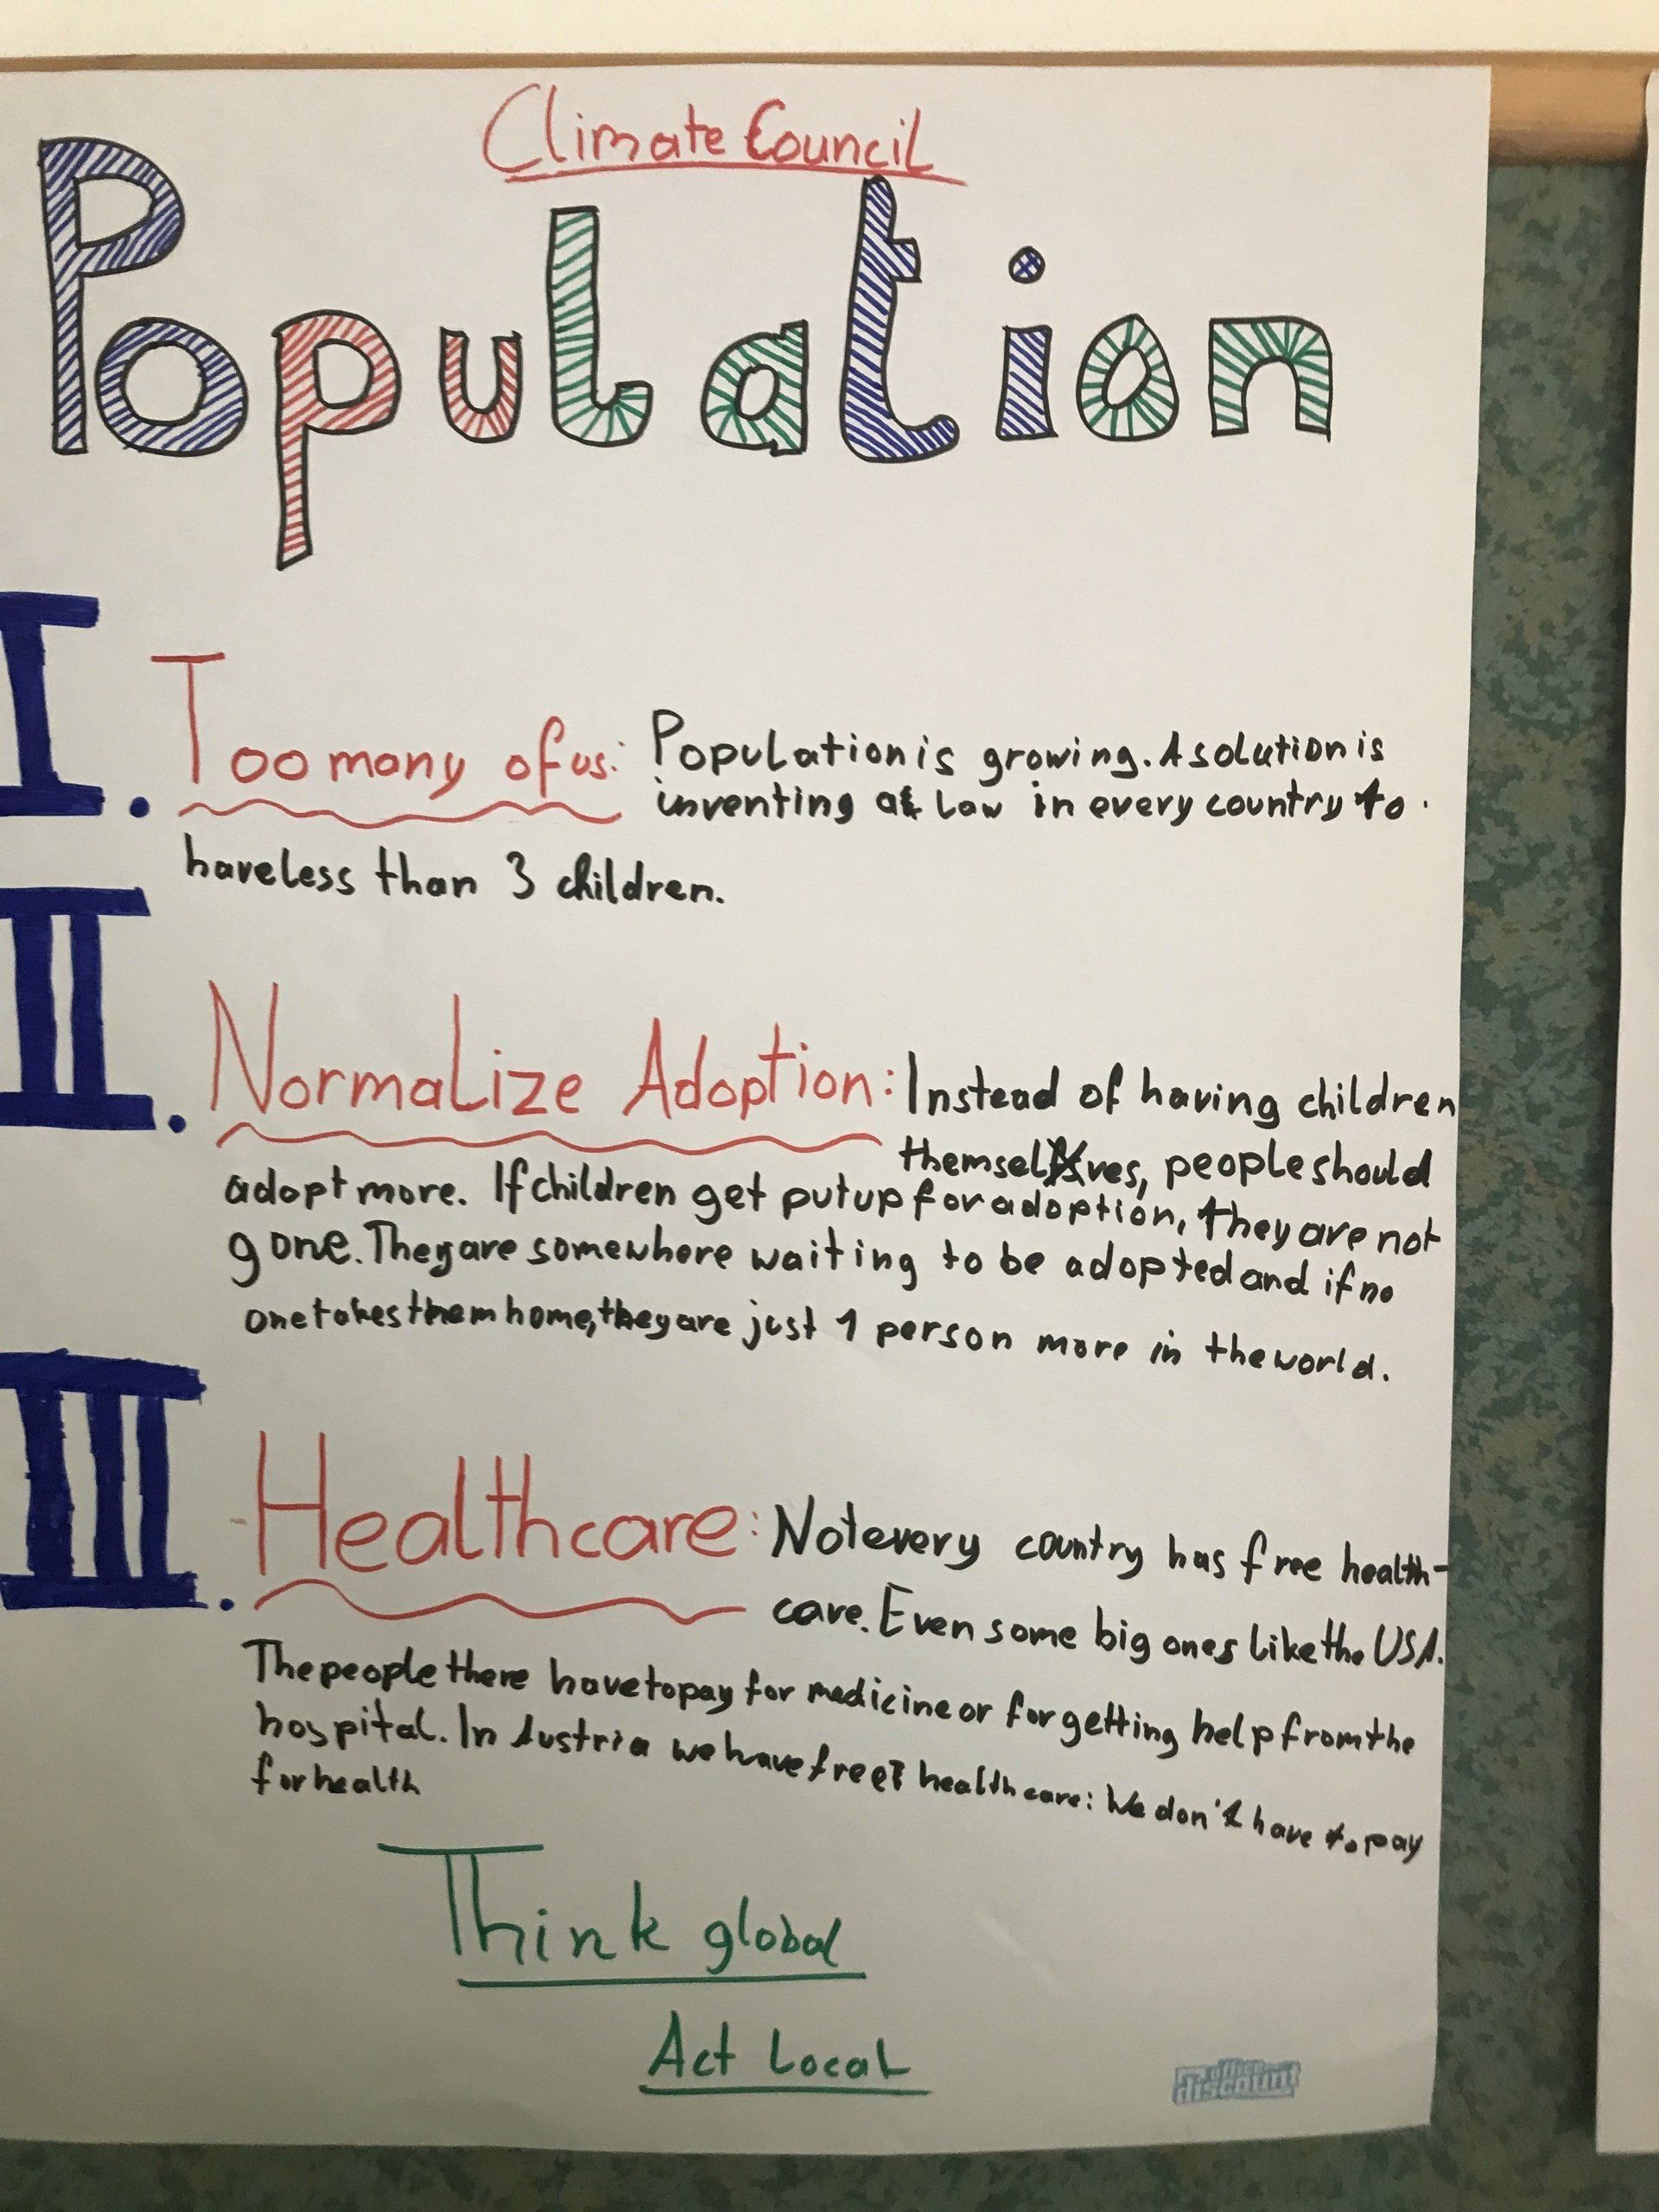 Climate Council
Population
I. Too many of us: Population is growing. A solution is
inventing a law in every country to
have less than 3 children.
II. Normalize Adoption: Instead of having children
themselves, people should
adopt more. If children get put up for adoption, they are not
gone. They are somewhere waiting to be adopted and if no
one takes them home, they are just 1 person more in the world.
III. Healthcare: Not every country has free health-
care. Even some big ones like the USA.
The people there have to pay for medicine or for getting help from the
hospital. In Austria we have free healthcare: We don't have to pay
for health
Think global
Act Local
office
discount